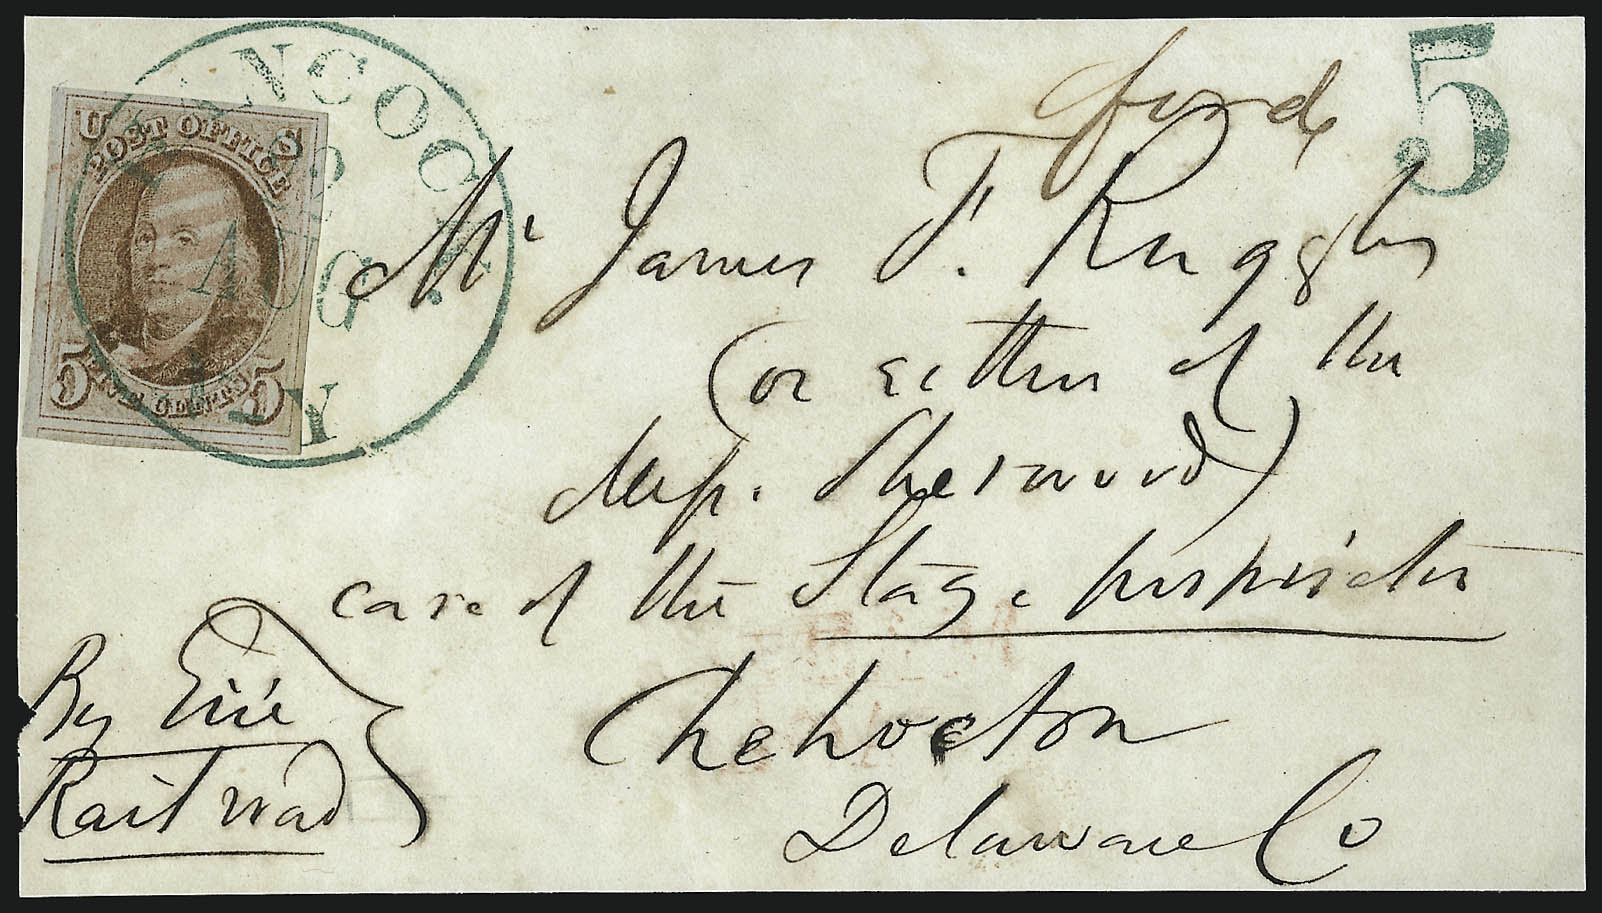 HANCOCK
AUG
NY
U S
POST OFFICE
5 FIVE CENTS 5
5
Mr James F. Ruggles
(or either of the
Messrs. Sherwood)
care of the Stage proprietor
Chehocton
Delaware Co
By Erie
Railroad